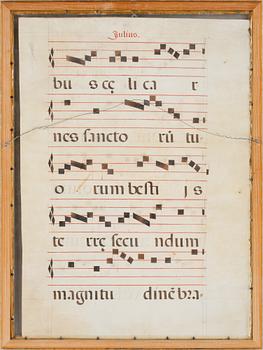 Julius.
bu s cę li ca r
nes sancto rū tu
o rum besti j s
te rrę secu ndum
magnitu dinē bra-